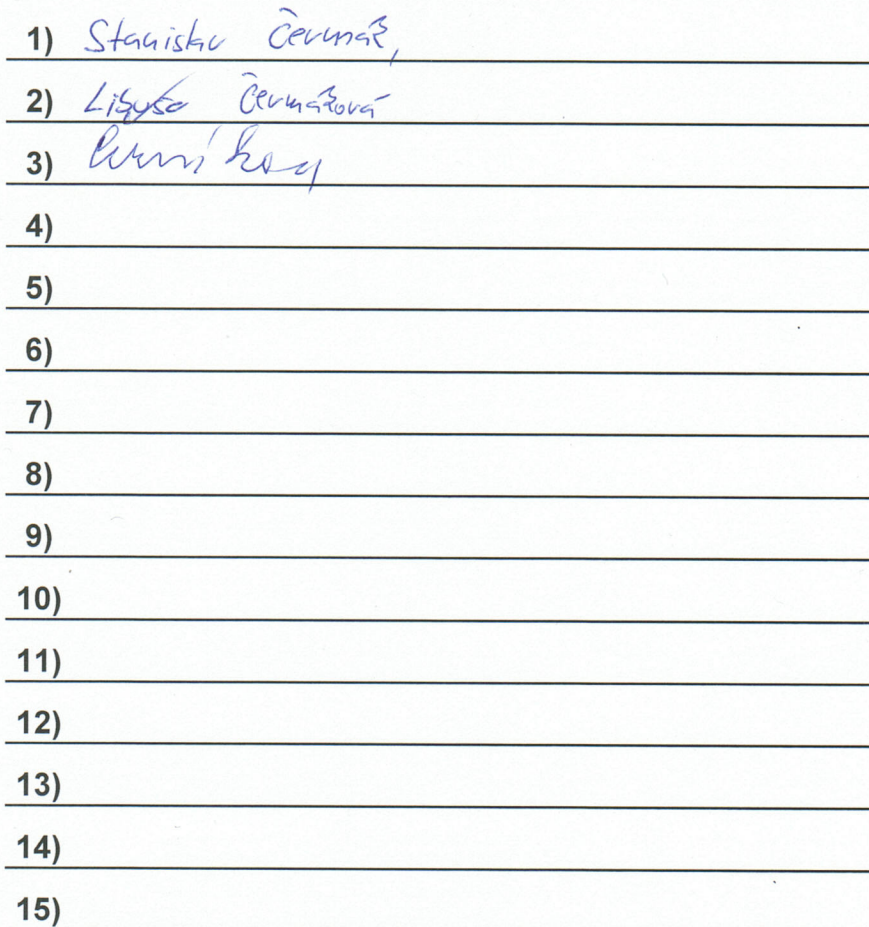 1) Stanislav Čermák,
2) Libuše Čermáková
3)
4)
5)
6)
7)
8)
9)
10)
11)
12)
13)
14)
15)